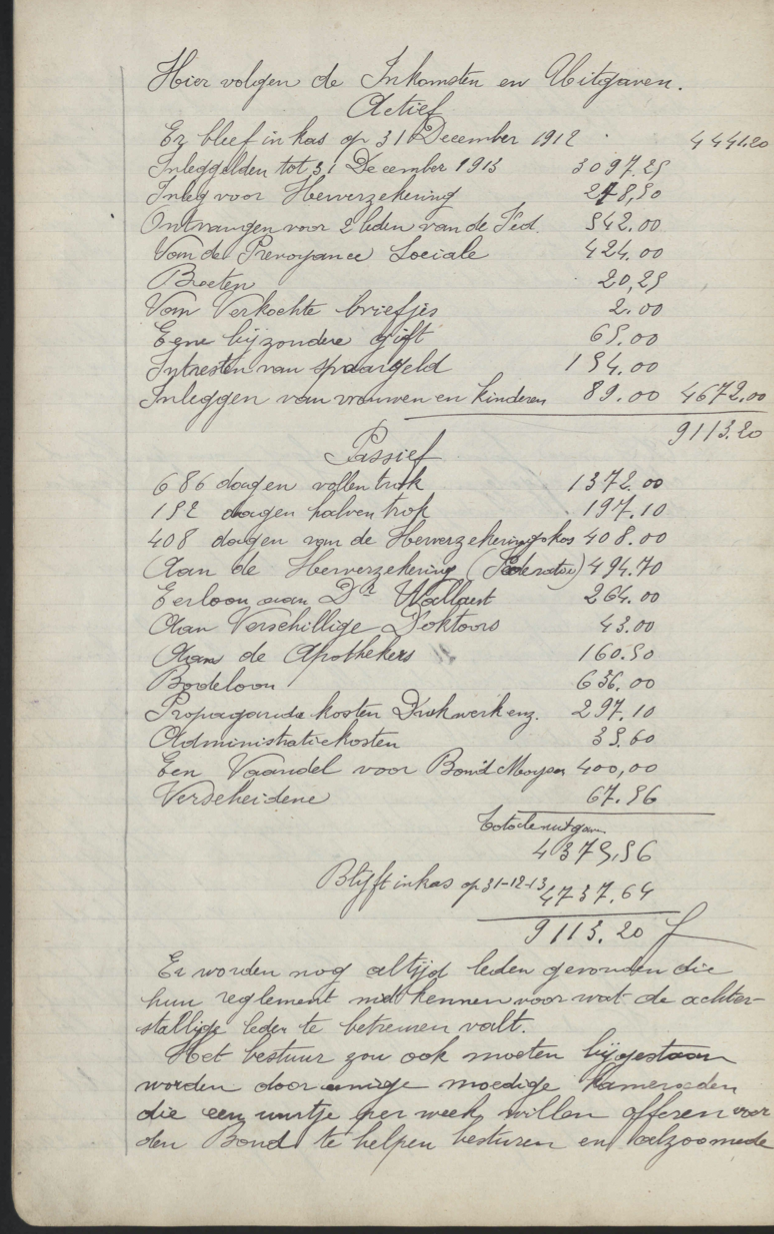 Hier volgen de Inkomsten en Uitgaven.
Actief
Er bleef in kas op 31 December 1912 4441.20
Inleggelden tot 31 December 1913 3097.25
Inleg voor Herverzekering 278,50
Ontvangen voor 2 leden van de Fed. 542.00
Van de Prevoyance Sociale 424.00
Boeten 20,25
Van Verkochte briefjes 2.00
Eene bijzondere gift 65.00
Intresten van spaargeld 154.00
Inleggen van vrouwen en kinderen 89.00 4672.00
9113.20
Passief
686 dagen vollen trok 1372.00
152 dagen halven trok 197.10
408 dagen van de Herverzekeringskas 408.00
Aan de Herverzekering (Federatie) 494.70
Eerloon aan Dr Wallaert 264.00
Aan Verschillige Doktoors 43.00
Aan de Apothekers 160.50
Bodeloon 636.00
Propaganda kosten Drukwerk enz. 297.10
Administratiekosten 35.60
Een Vaandel voor Bond Moyson 400,00
Verscheidene 67.56
Totale uitgaven
4375,56
Blijft in kas op 31-12-13 4737.64
9113.20 f
Er worden nog altijd leden gevonden die
hun reglement niet kennen voor wat de achter-
stallige leden te betreuren valt.
Het bestuur zou ook moeten bijgestaan
worden door eenige moedige kameraden
die een uurtje per week willen offeren voor
den Bond te helpen besturen en alzoo mede